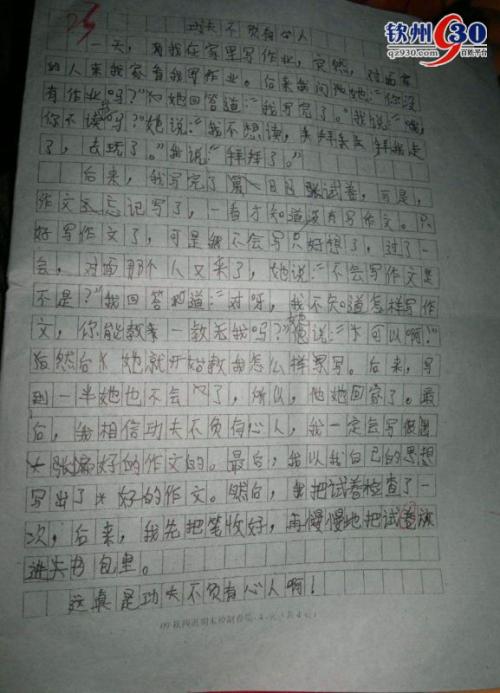 钦州 930
qz930.com 百姓平台
25
功夫不负有心人
一天,我在家里写作业,突然,对面
的人来我家看我写作业。后来我问她:“你没
有作业吗?”她回答道:“我写完了。”我说:“哦,
你不读吗?”她说:“我不想读,拜拜我走
了,去玩了。”我说:“拜拜了。”
后来,我写完了第一张试卷,可是,
作文忘记写了,一看才知道没有写作文。只
好写作文了,可是我不会写只好想了,过了一
会,对面那个人又来了,她说:“不会写作文是
不是?”我回答道:“对呀,我不知道怎样写作
文,你能教来一教我吗?”她说:“可以啊!”
然后她就开始教我怎么样写。后来,写
到一半她也不会了,所以,她回家了。最
后,我相信功夫不负有心人,我一定会写很
张篇好的作文的。最后,我以我自己的思想
写出了好的作文。然后,我把试卷检查了一
次,后来,我先把笔收好,再慢慢地把试卷放
进书包里。
这真是功夫不负有心人啊!